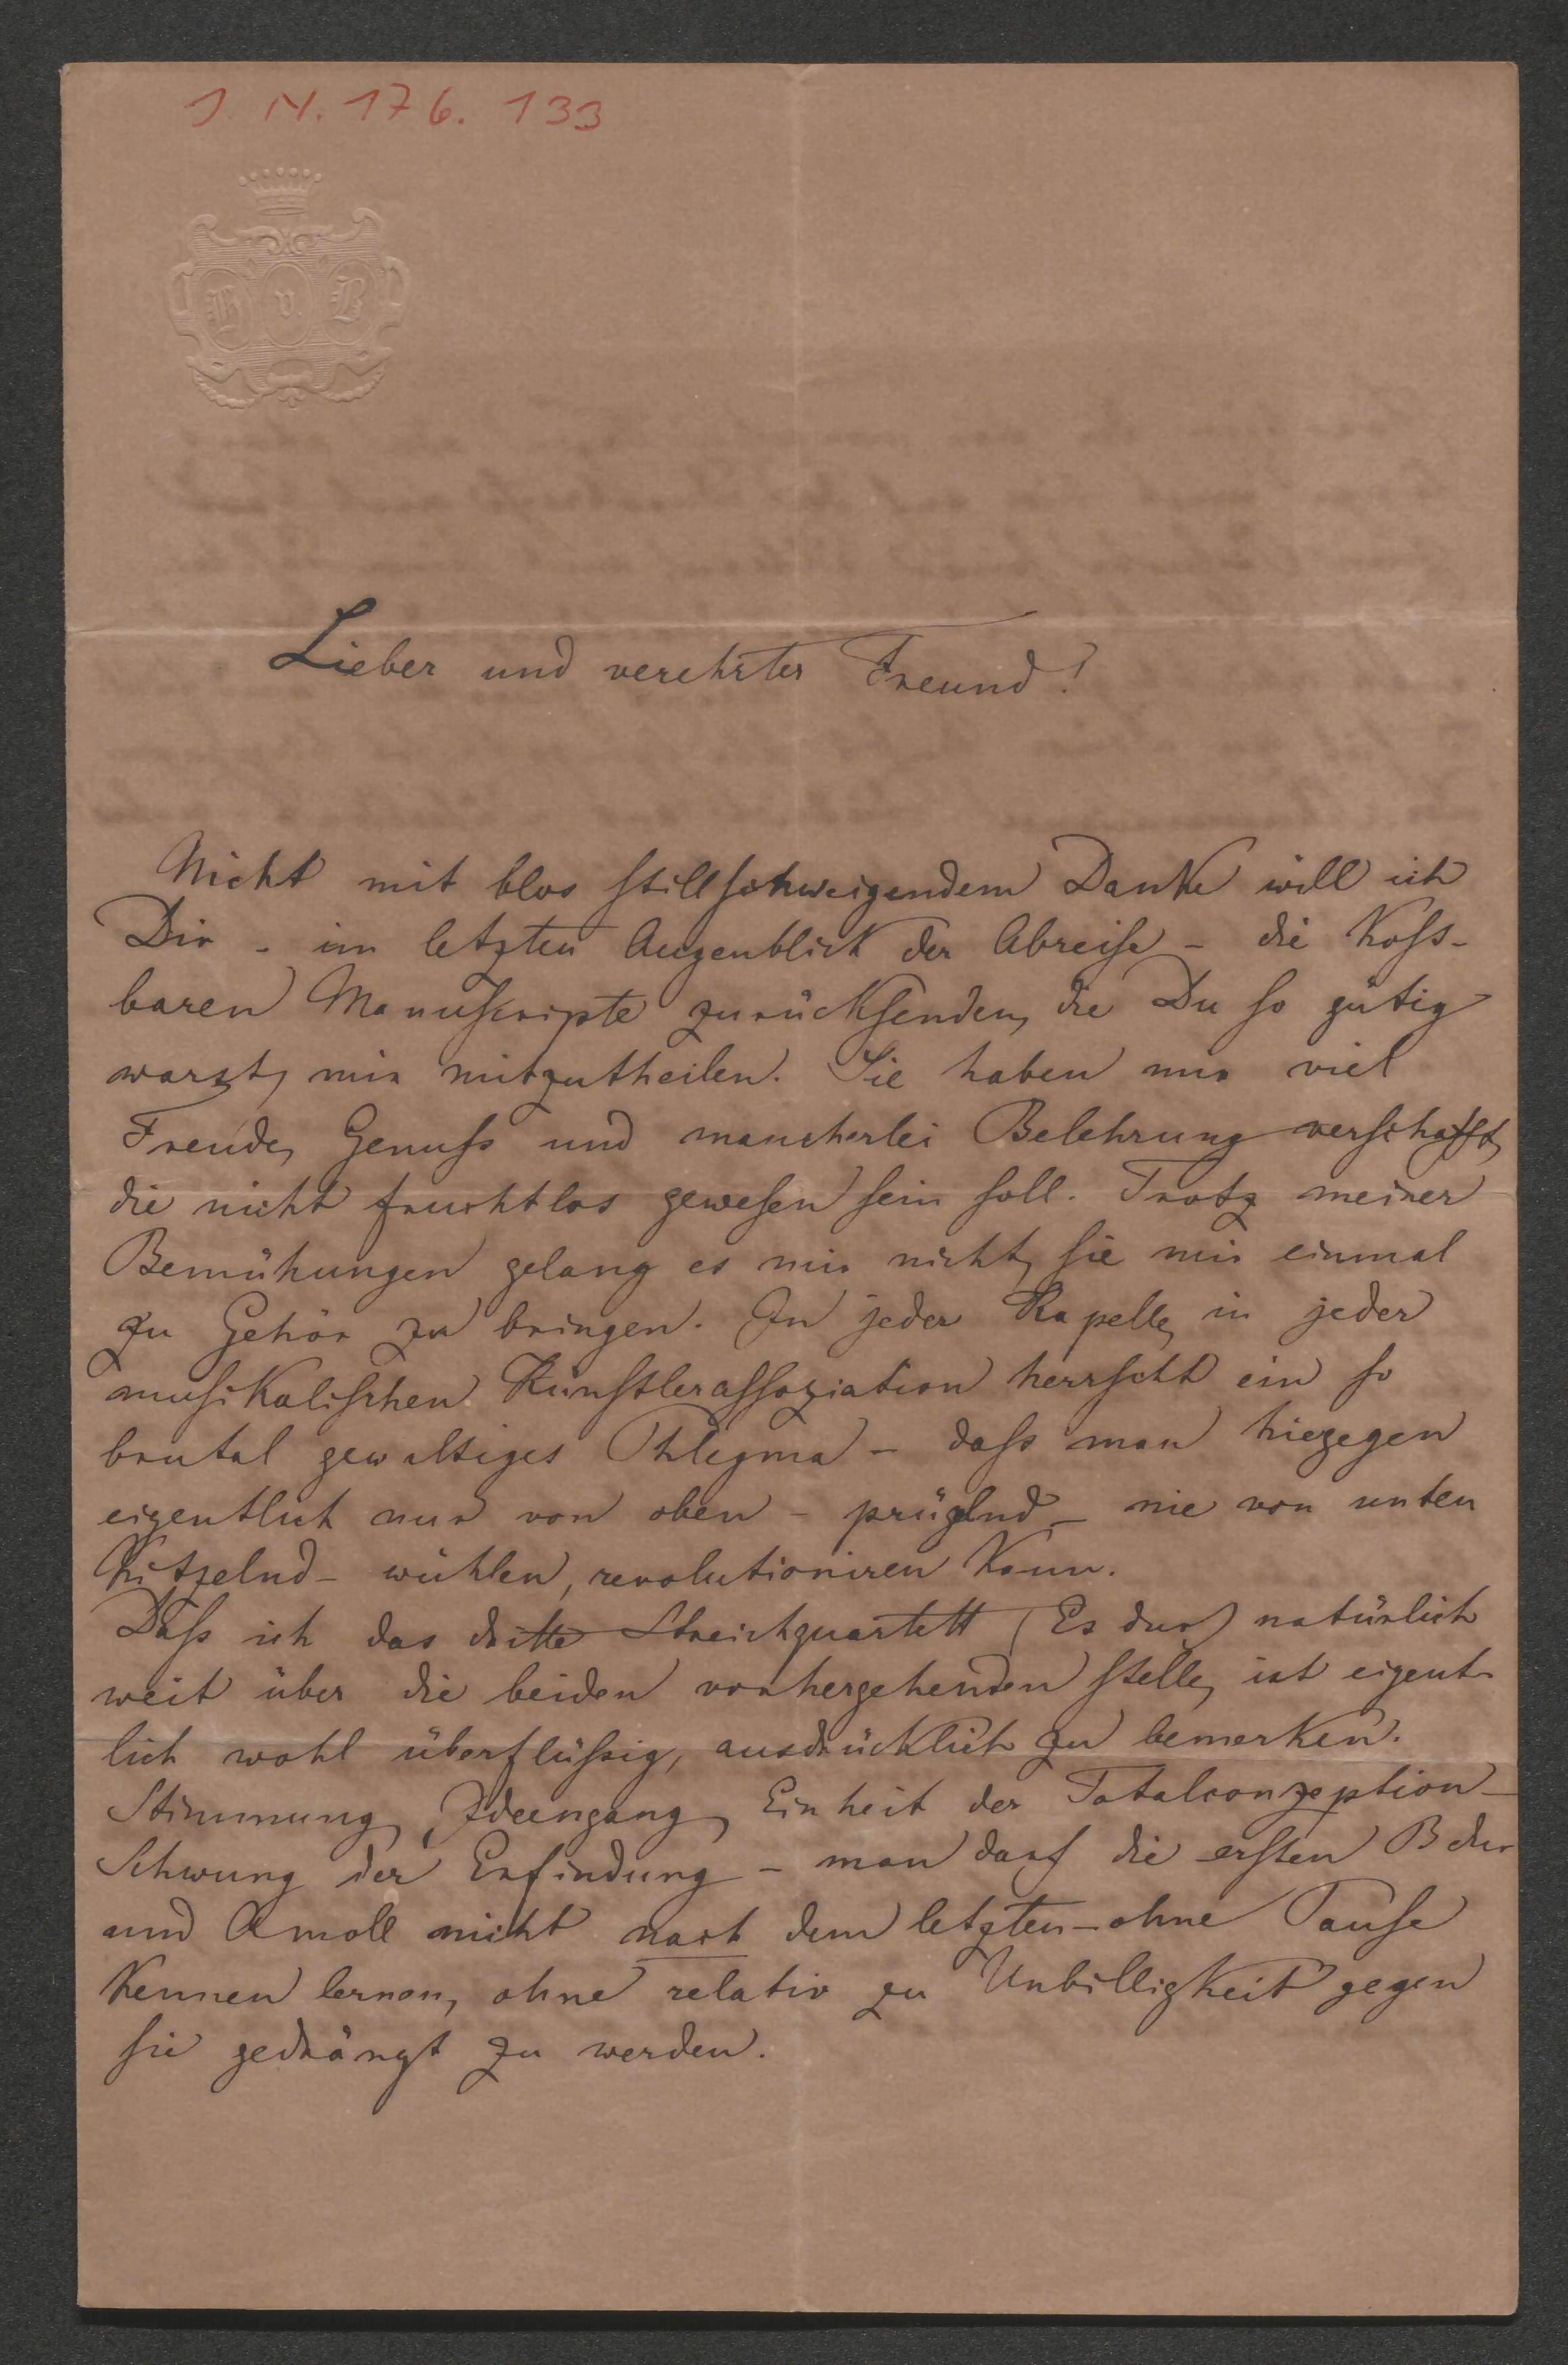 J. N. 176. 133
H v. B
Lieber und verehrter Freund!
Nicht mit blos stillschweigendem Danke will ich
Dir - im letzten Augenblick der Abreise - die kost-
baren Manuscripte zurücksenden, die Du so gütig
warst, mir mitzutheilen. Sie haben mir viel
Freude, Genuss und mancherlei Belehrung verschafft,
die nicht fruchtlos gewesen sein soll. Trotz meiner
Bemühungen gelang es mir nicht, sie mir einmal
zu Gehör zu bringen. In jeder Kapelle, in jeder
musikalischen Künstlerassoziation herrscht ein so
brutal gewaltiges Phlegma - dass man hiegegen
eigentlich nur von oben - prügelnd - nie von unten
kitzelnd - wühlen, revolutioniren kann.
Dass ich das dritte Streichquartett (Es dur) natürlich
weit über die beiden vorhergehenden stelle, ist eigent-
lich wohl überflüssig, ausdrücklich zu bemerken.
Stimmung, Ideengang, Einheit der Totalconzeption -
Schwung der Erfindung - man darf die ersten B dur
und A moll nicht nach dem letzten - ohne Pause
kennen lernen, ohne relativ zu Unbilligkeit gegen
sie gedrängt zu werden.